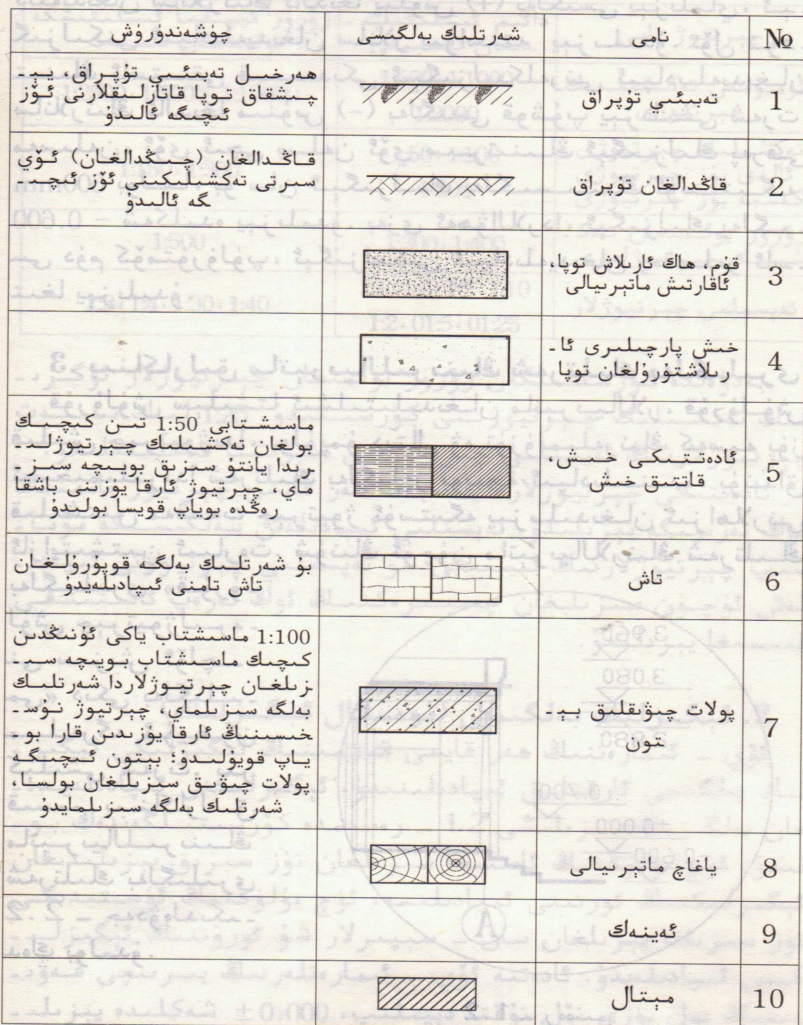 № نامى شەرتلىك بەلگىسى چۈشەندۈرۈش
1 تەبىئىي تۇپراق
ھەرخىل تەبىئىي تۇپراق، يې-
پىشقاق توپا قاتارلىقلارنى ئۆز
ئىچىگە ئالىدۇ
2 قاڭدالغان تۇپراق
قاڭدالغان (چىڭدالغان) ئۆي
سىرتى تەكشىلىكىنى ئۆز ئىچى-
گە ئالىدۇ
3 قۇم، ھاك ئارىلاش توپا،
ئاقارتىش ماتېرىيالى
4 خىش پارچىلىرى ئا-
رىلاشتۇرۇلغان توپا
5 ئادەتتىكى خىش،
قاتتىق خىش
ماسىشتابى 1:50 تىن كىچىك
بولغان تەكشىلىك چېرتيوژلى-
رىدا يانتۇ سىزىق بويىچە سىز-
ماي، چېرتيوژ ئارقا يۈزىنى باشقا
رەڭدە بوياپ قويسا بولىدۇ
6 تاش
بۇ شەرتلىك بەلگە قويۇرۇلغان
تاش تامنى ئىپادىلەيدۇ
7 پولات چىۋىقلىق بې-
تون
1:100 ماسىشتاب ياكى ئۇنىڭدىن
كىچىك ماسىشتاب بويىچە سى-
زىلغان چېرتيوژلاردا شەرتلىك
بەلگە سىزىلماي، چېرتيوژ نۇس-
خىسىنىڭ ئارقا يۈزىدىن قارا بو-
ياپ قويۇلىدۇ؛ بېتون ئىچىگە
پولات چىۋىق سىزىلغان بولسا،
شەرتلىك بەلگە سىزىلمايدۇ
8 ياغاچ ماتېرىيالى
9 ئەينەك
10 مېتال